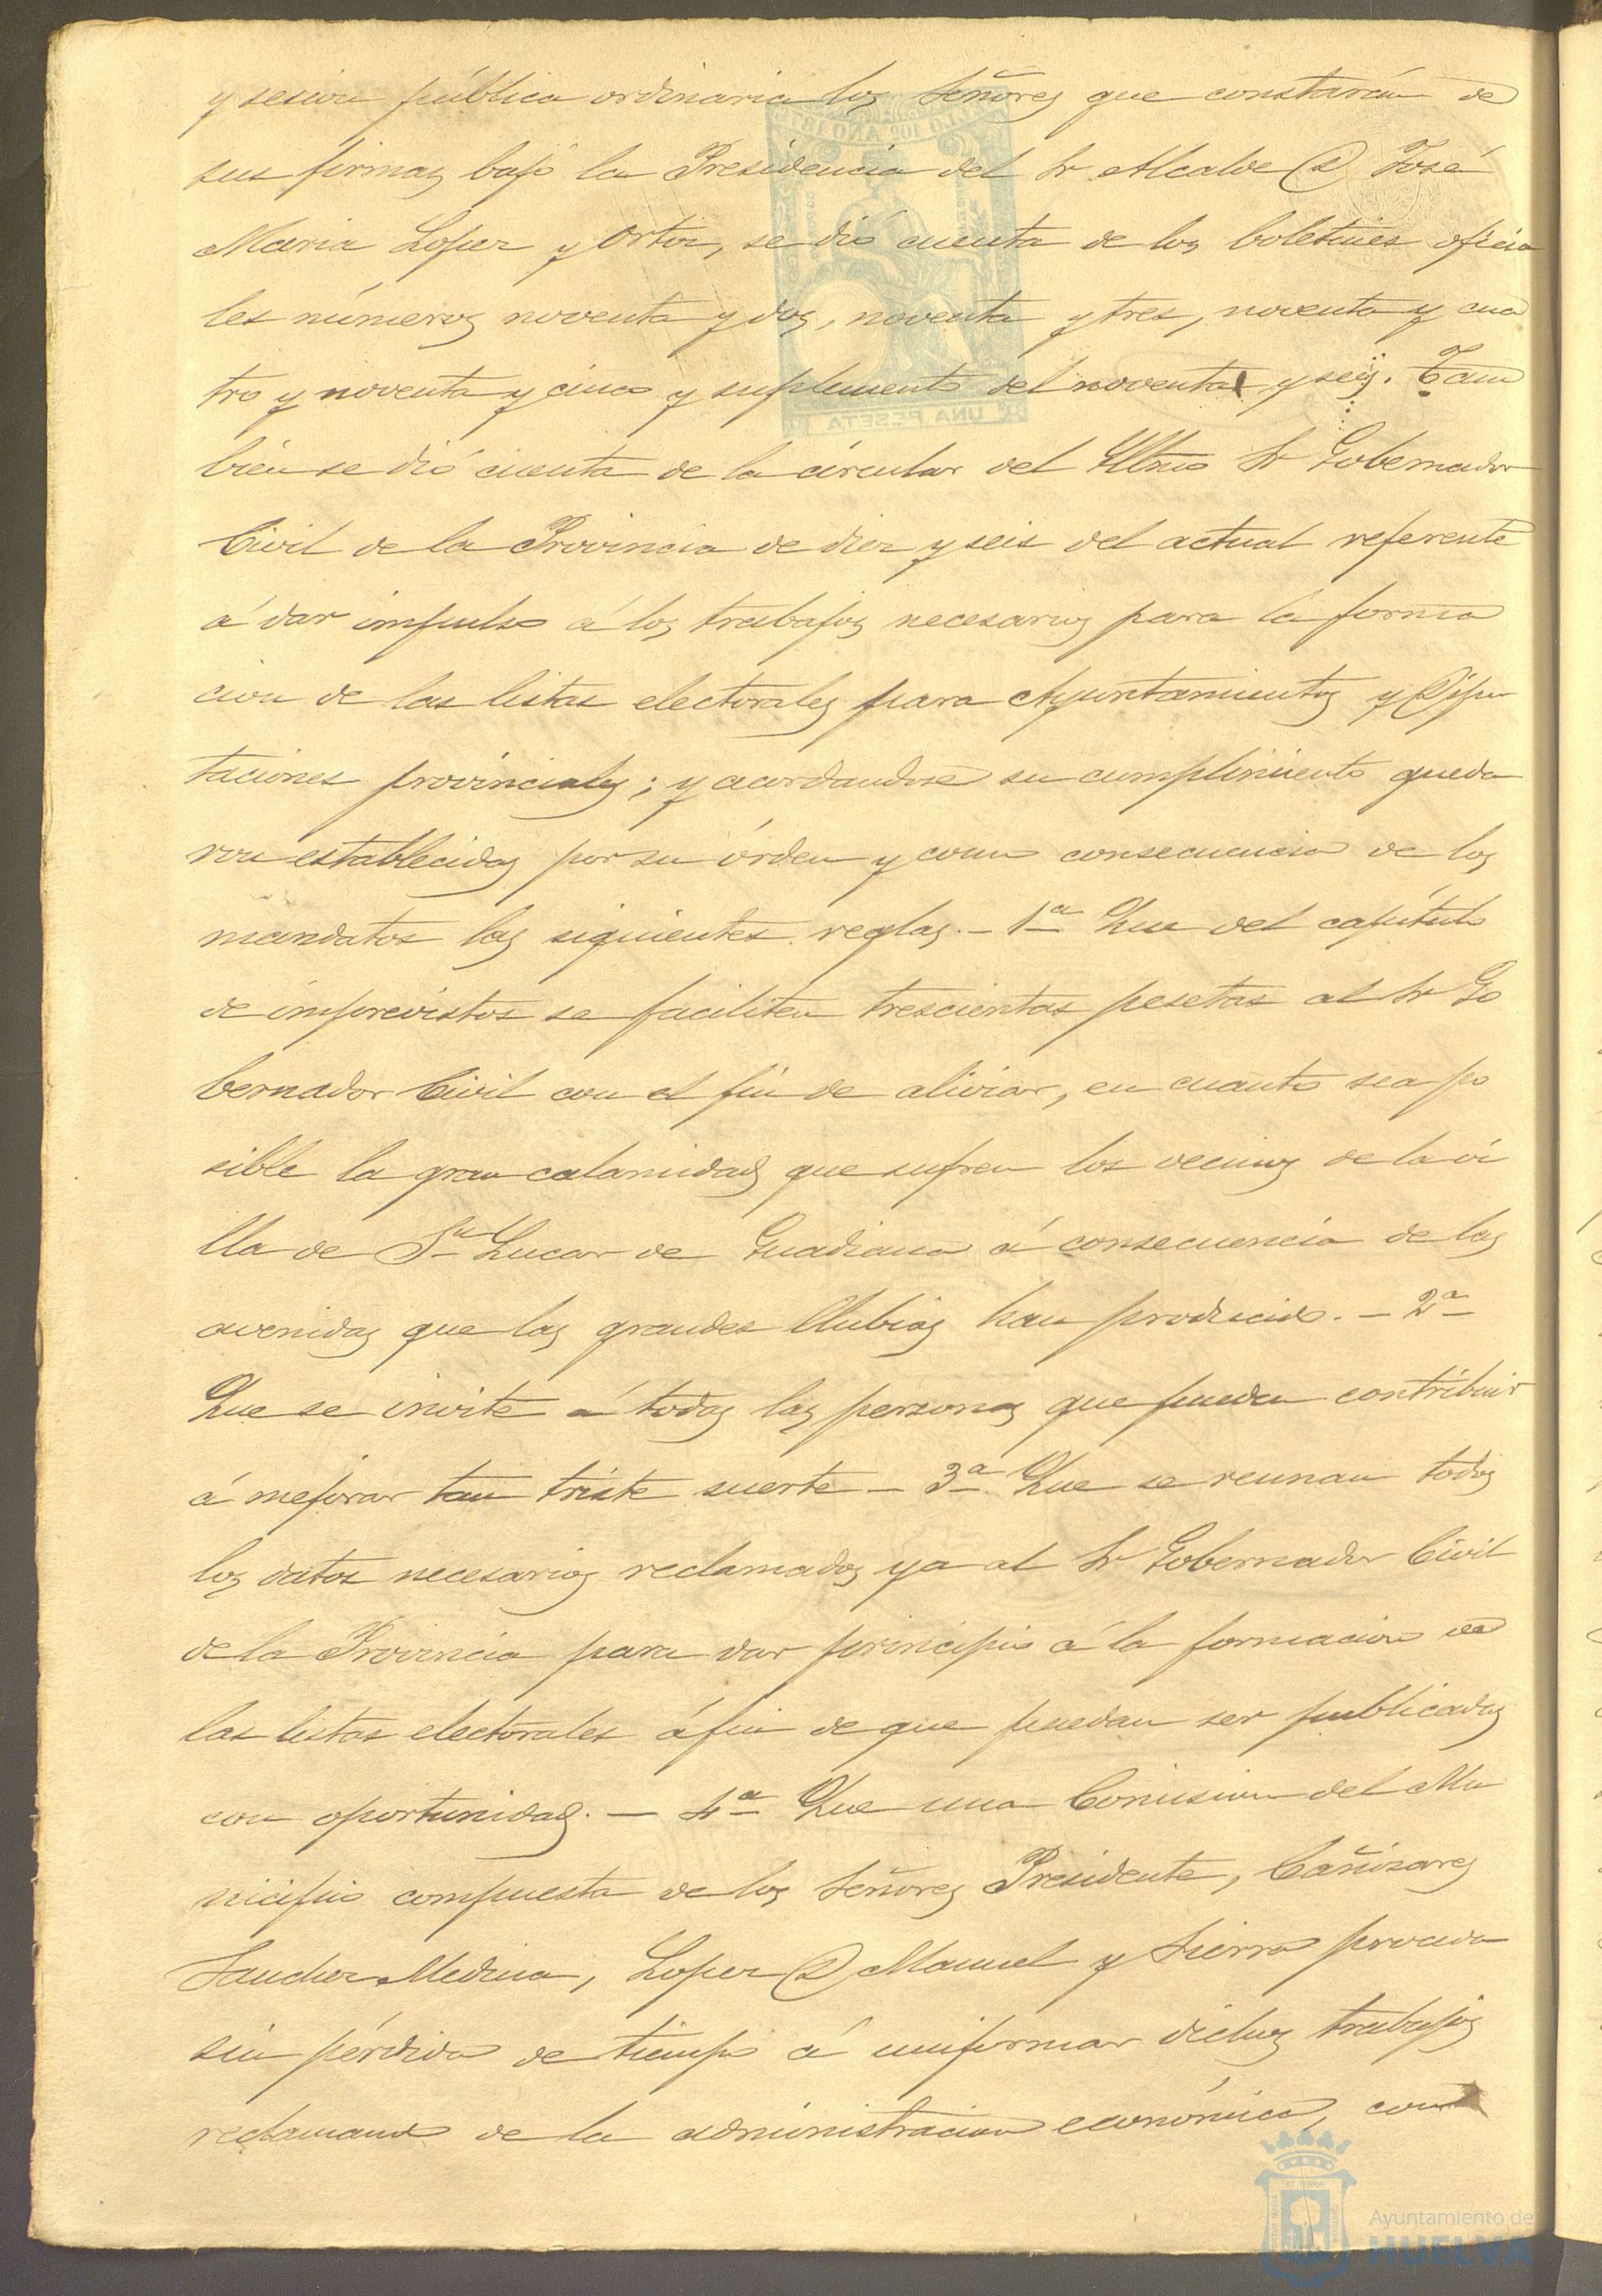 y sesion pública ordinaria los Señores que constarán de
sus firmas bajo la Presidencia del Sr Alcalde D José
Maria Lopez y Ortiz, se dió cuenta de los boletines oficia
les números noventa y dos, noventa y tres, noventa y cua
tro y noventa y cinco y suplemento del noventa y seis. Tam
bien se dió cuenta de la circular del Yltmo Sr Gobernador
Civil de la Provincia de diez y seis del actual referente
á dar impulso á los trabajos necesarios para la forma
cion de las listas electorales para Ayuntamientos y Dipu
taciones provinciales; y acordandose su cumplimiento queda
ron establecidas por su órden y como consecuencia de los
mandatos las siguientes reglas. - 1ª Que del capítulo
de imprevistos se faciliten trescientas pesetas al Sr Go
bernador Civil con el fin de aliviar, en cuanto sea po
sible la gran calamidad que sufren los vecinos de la vi
lla de Sn Lucar de Guadiana á consecuencia de las
avenidas que las grandes llubias han producido. - 2ª
Que se invite á todas las personas que puedan contribuir
á mejorar tan triste suerte - 3ª Que se reunan todos
los datos necesarios reclamados ya al Sr Gobernador Civil
de la Provincia para dar principio á la formacion de
las listas electorales á fin de que puedan ser publicadas
con oportunidad. - 4ª Que una Comision del Mu
nicipio compuesta de los Señores Presidente, Cañizares
Sanchez Medina, Lopez D Manuel y Sierra proceda
sin pérdida de tiempo á uniformar dichos trabajos
reclamando de la administracion económica, con
Ayuntamiento de
HUELVA